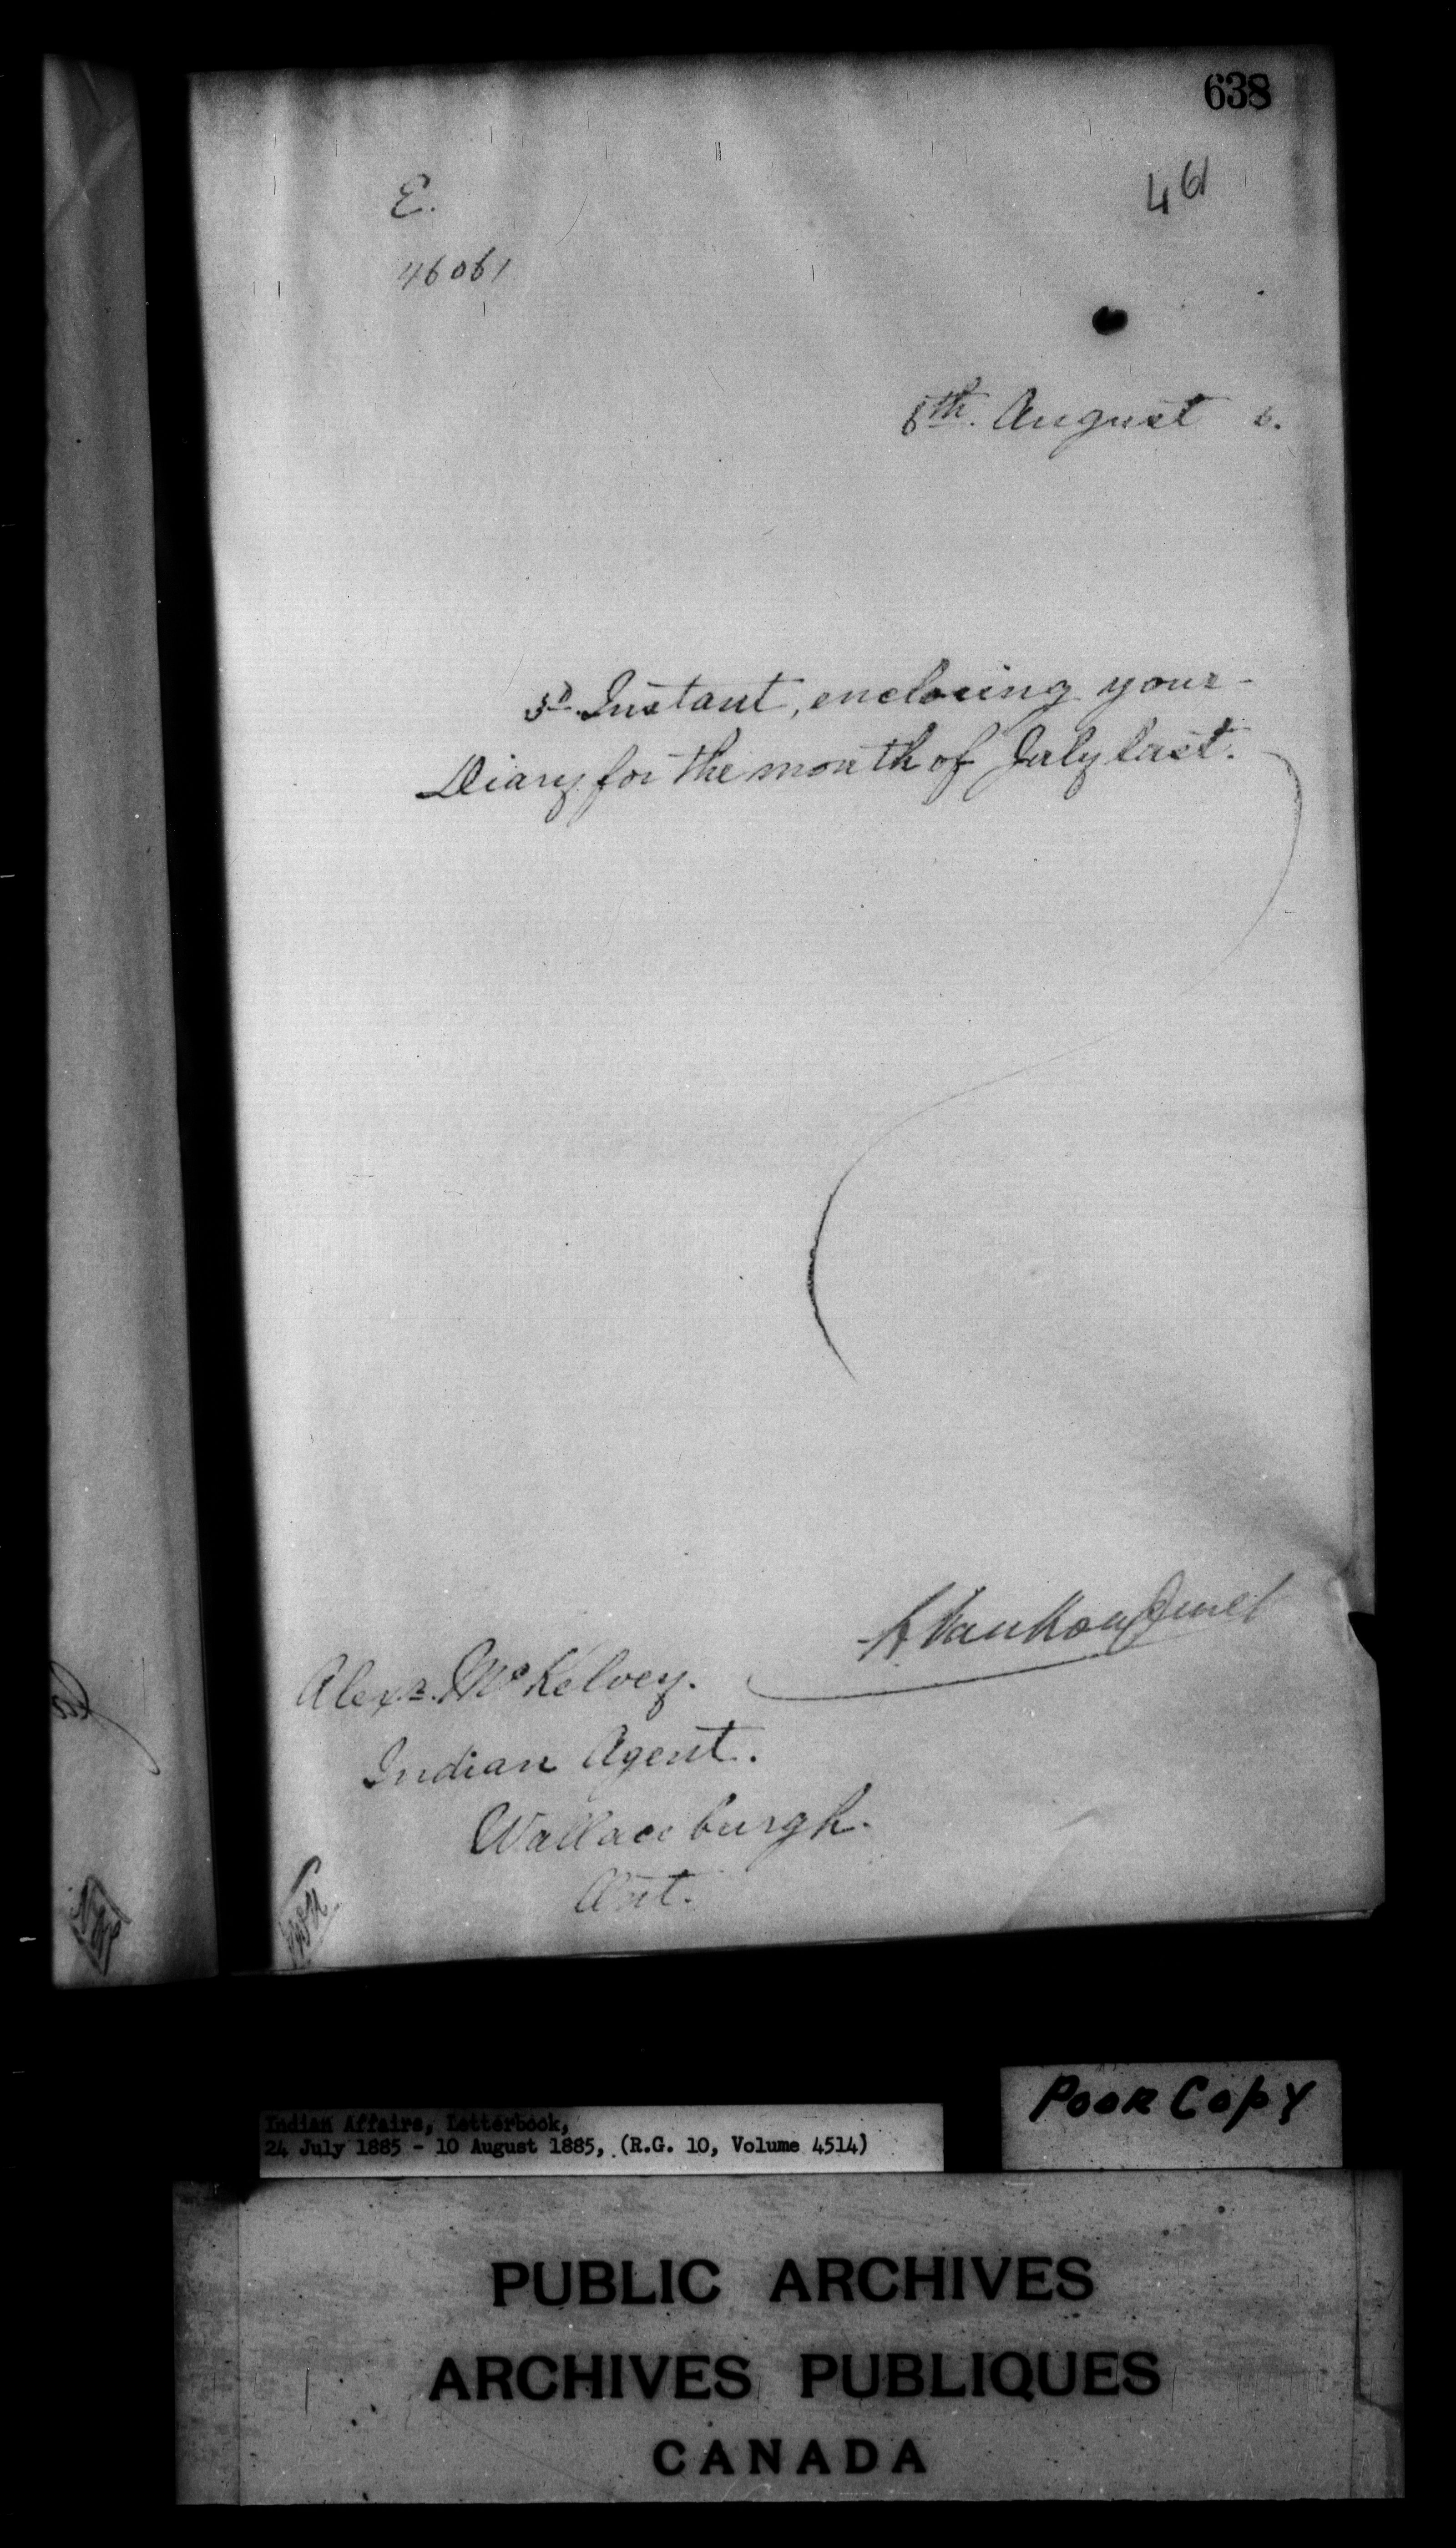 638
461
E.
46061
8th. August 5.
3d. Instant, enclosing your
Diary for the month of July last.
L. VanKoughnet
Alexr. McKelvey.
Indian Agent.
Wallaceburgh.
Ont.
Poor Copy
Indian Affairs, Letterbook,
24 July 1885 - 10 August 1885, (R.G. 10, Volume 4514)
PUBLIC ARCHIVES
ARCHIVES PUBLIQUES
CANADA